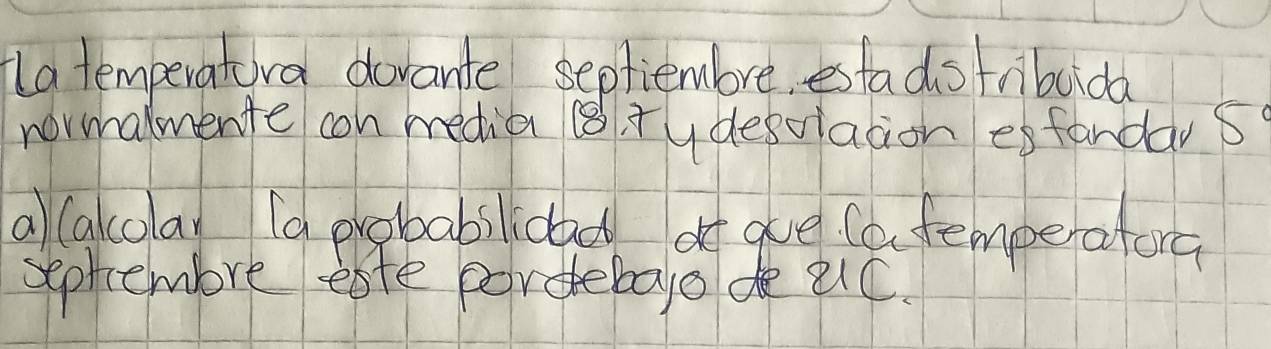 La temperatura durante septiembre. esta distribuida
normalmente con media 18.7 y desviacion estandar 5°
a) Calcolar la probabilidad de que la temperatura
septiembre este pordebajo de 21C.